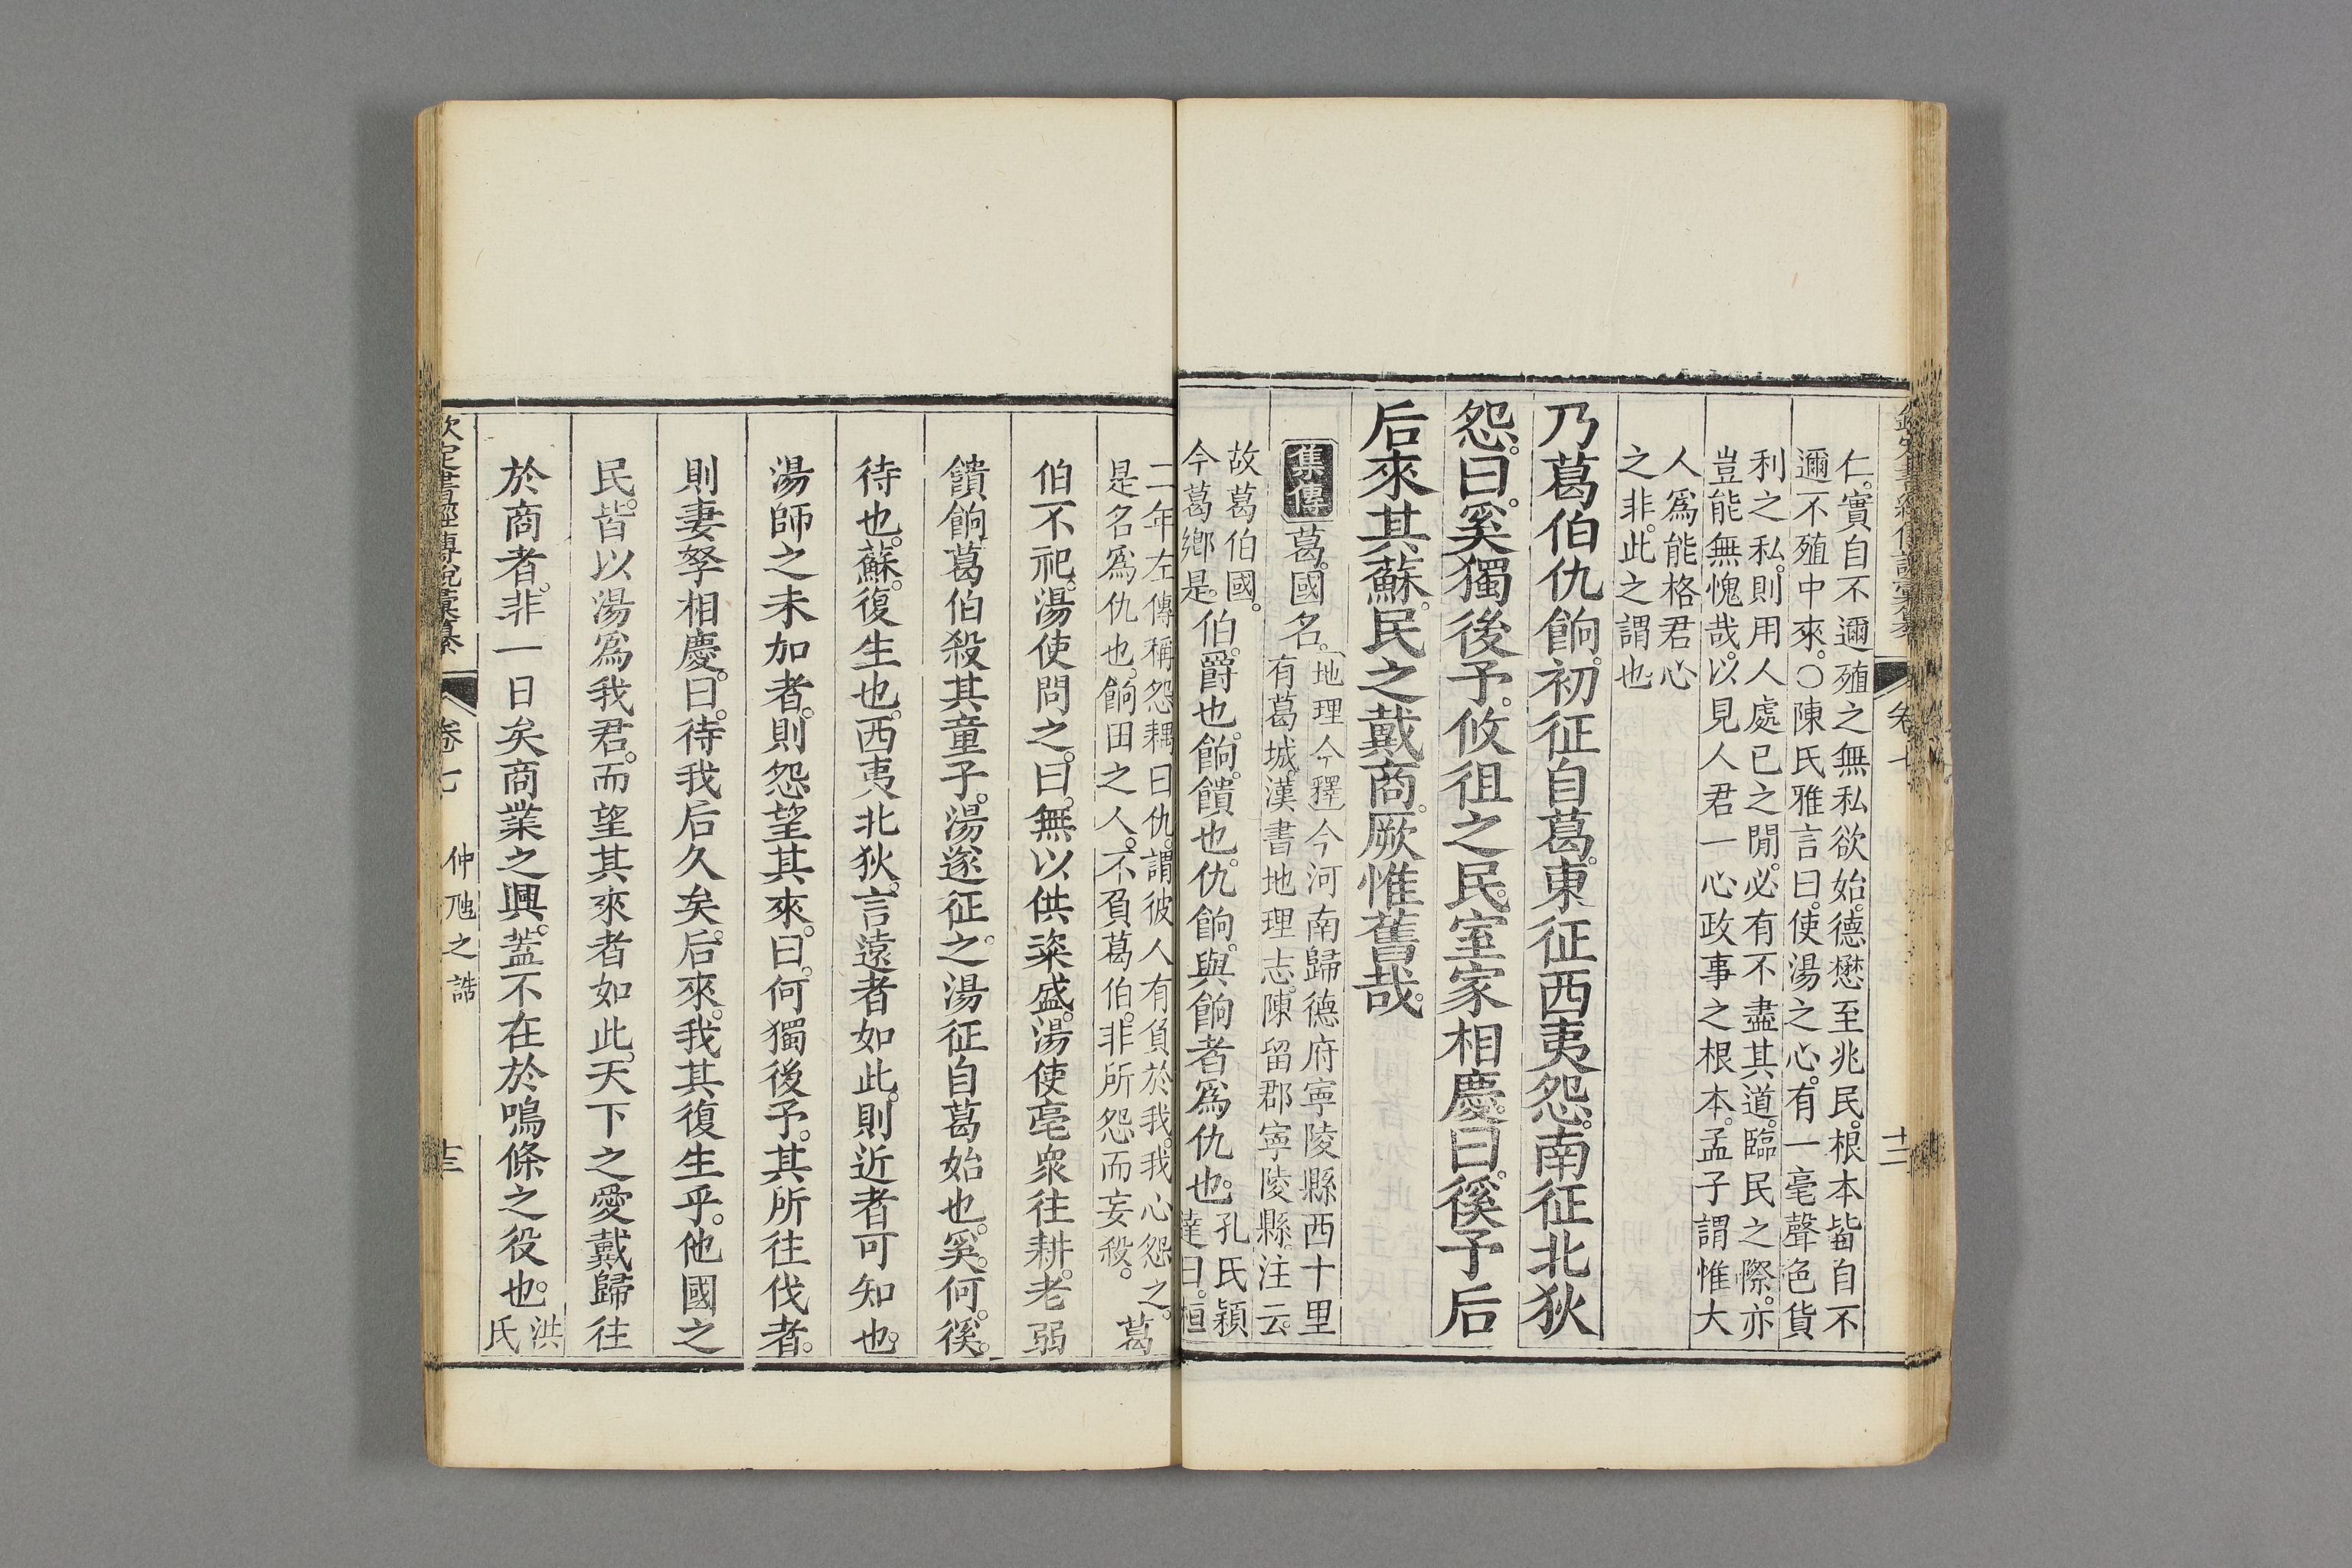 仁。實自不邇殖之無私欲始。德懋至兆民。根本皆自不
邇不殖中來。○陳氏雅言曰。使湯之心。有一毫聲色貨
利之私。則用人處已之閒。必有不盡其道。臨民之際。亦
豈能無愧哉。以見人君一心政事之根本。孟子謂惟大
人爲能格君心
之非。此之謂也
乃葛伯仇餉。初征自葛。東征西夷怨。南征北狄
怨。曰。奚獨後予。攸徂之民。室家相慶。曰。徯予后
后來其蘇。民之戴商。厥惟舊哉。
集傳
葛。國名。
地理今釋今河南歸德府寧陵縣西十里
有葛城。漢書地理志。陳留郡寧陵縣。注云。
故葛伯國。
今葛鄉是。
伯。爵也。餉。饋也。仇餉。與餉者爲仇也。
孔氏穎
達曰。桓
二年左傳稱怨耦曰仇。謂彼人有負於我。我心怨之。
是名爲仇也。餉田之人。不負葛伯。非所怨而妄殺。
葛
伯不祀。湯使問之。曰。無以供粢盛。湯使亳衆往耕。老弱
饋餉。葛伯殺其童子。湯遂征之。湯征自葛始也。奚。何。徯。
待也。蘇。復生也。西夷北狄。言遠者如此。則近者可知也。
湯師之未加者。則怨望其來。曰。何獨後予。其所往伐者。
則妻孥相慶。曰。待我后久矣。后來。我其復生乎。他國之
民。皆以湯爲我君。而望其來者如此。天下之愛戴歸往
於商者。非一日矣。商業之興。蓋不在於鳴條之役也。
洪
氏
欽定書經傳說彙纂 卷七 仲虺之誥 十三